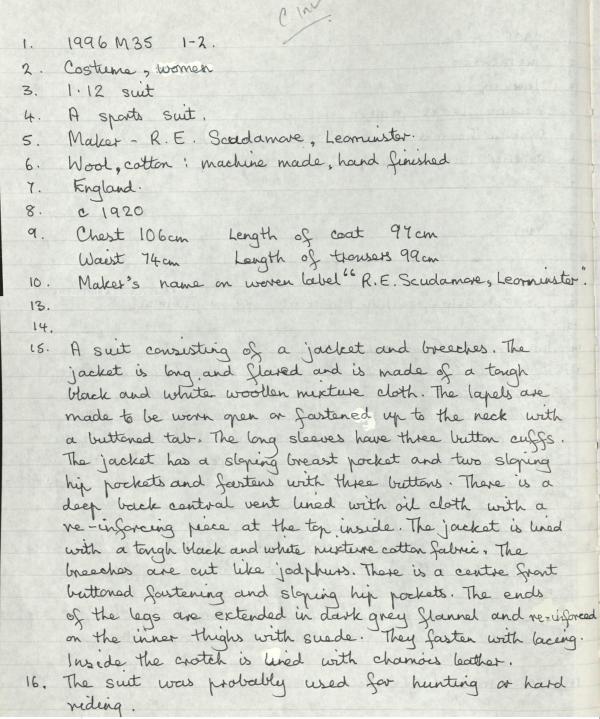 C Inv
1. 1996 M35 1-2.
2. Costume, women
3. 1.12 suit
4. A sports suit.
5. Maker - R.E. Scudamore, Leominster.
6. Wool, cotton : machine made, hand finished
7. England.
8. c 1920
9. Chest 106cm Length of coat 97cm
Waist 74cm Length of trousers 99cm
10. Maker's name on woven label "R.E. Scudamore, Leominster".
13.
14.
15. A suit consisting of a jacket and breeches. The
jacket is long and flared and is made of a tough
black and white woollen mixture cloth. The lapels are
made to be worn open or fastened up to the neck with
a buttoned tab. The long sleeves have three button cuffs.
The jacket has a sloping breast pocket and two sloping
hip pockets and fastens with three buttons. There is a
deep back central vent lined with oil cloth with a
re-inforcing piece at the top inside. The jacket is lined
with a tough black and white mixture cotton fabric. The
breeches are cut like jodphurs. There is a centre front
buttoned fastening and sloping hip pockets. The ends
of the legs are extended in dark grey flannel and re-inforced
on the inner thighs with suede. They fasten with lacing.
Inside the crotch is lined with chamois leather.
16. The suit was probably used for hunting or hard
riding.